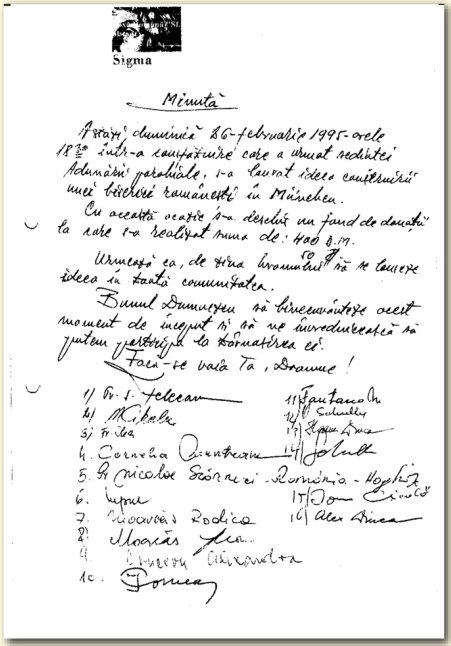 Sigma
Minută
Astăzi duminică 26-februarie 1995-orele
18³⁰ într-o consfătuire care a urmat sedintei
Adunării parohiale, s-a lansat ideea construirii
unei biserici românești în München.
Cu această ocazie s-a deschis un fond de donații
la care s-a realizat suma de: 400 D.M.
50 $
Urmează ca, de ziua hramului să se lanseze
ideea în toată comunitatea.
Bunul Dumnezeu să binecuvânteze acest
moment de început și să ne învrednicească să
putem participa la târnosirea ei.
Facă-se voia Ta, Doamne!
1) Pr. S. Felecan
2)
3)
4. Cornelia
5. Pr Nicolae - România -
6.
7. Rodica
8)
9. Alexandra
10.
11)
12) Schuller
13)
14)
15) Ion
16) Alex Dinca